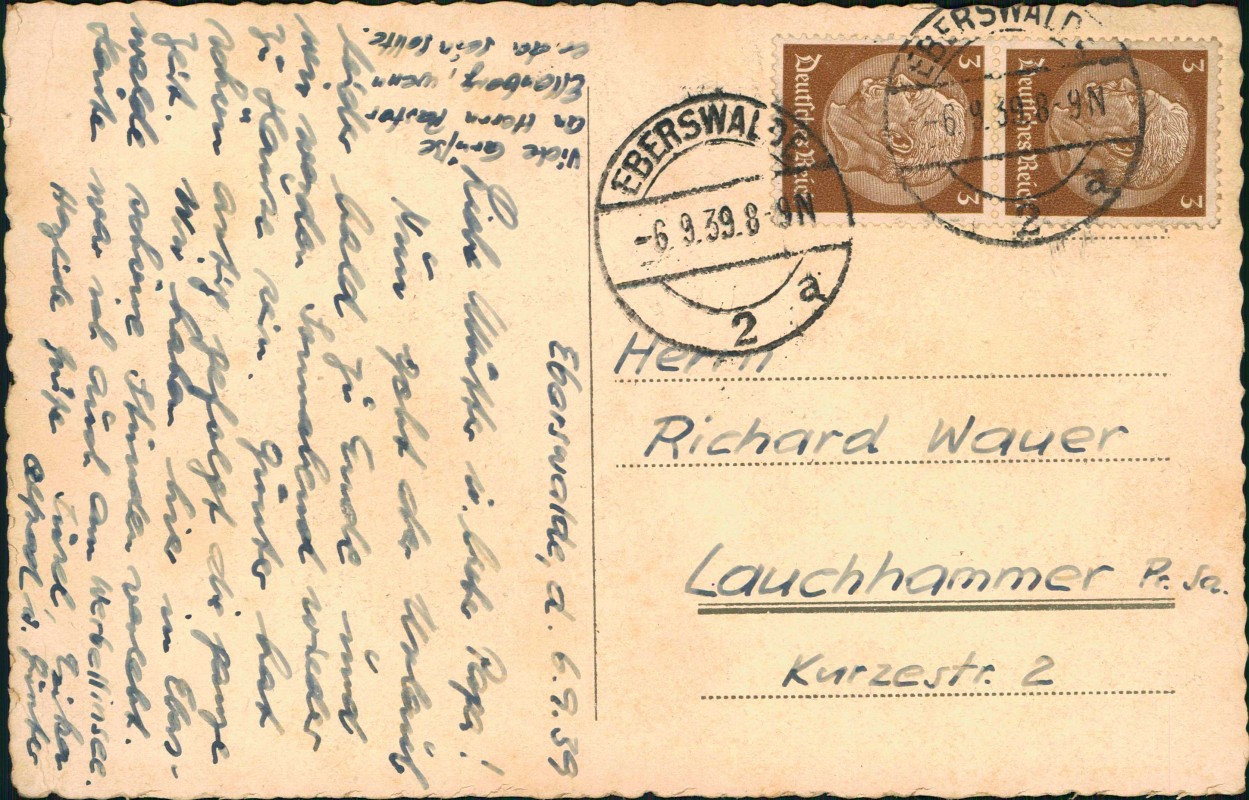 Eberswalde, d. 6.9.39
Liebe Mutter u. lieber Papa!
Nun geht der Urlaub
leider bald zu Ende und
wir werden Sonnabend wieder
zu Hause sein. Günter hat
schön artig gefolgt die ganze
Zeit. Wir haben hier in Ebers-
walde schöne Stunden verlebt.
Heute war ich auch am Werbellinsee.
Herzliche Grüße
Erika
Alfred u. Günter
Viele Grüße
an Herrn Pastor
wenn
er da sein sollte.
EBERSWALDE
-6.9.39.8-9N
2
a
EBERSWALDE
-6.9.39.8-9N
2
a
Deutsches Reich
3
3
Deutsches Reich
3
3
Herrn
Richard Wauer
Lauchhammer Pr. Sa.
Kurzestr. 2